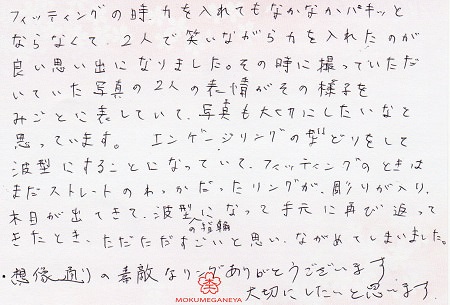 フィッティングの時、力を入れてもなかなかパキッと
ならなくて、2人で笑いながら力を入れたのが
良い思い出になりました。その時に撮っていただ
いていた写真の2人の表情がその様子を
みごとに表していて、写真も大切にしたいなと
思っています。 エンゲージリングの型どりをして
波型にすることになっていて、フィッティングのときは
まだストレートのわっかだったリングが、彫りが入り、
木目が出てきて、波型になって手元に再び返って
の指輪
きたとき、ただただすごいと思い、ながめてしまいました。
・想像通りの素敵なリングありがとうございます
大切にしたいと思います。
MOKUMEGANEYA